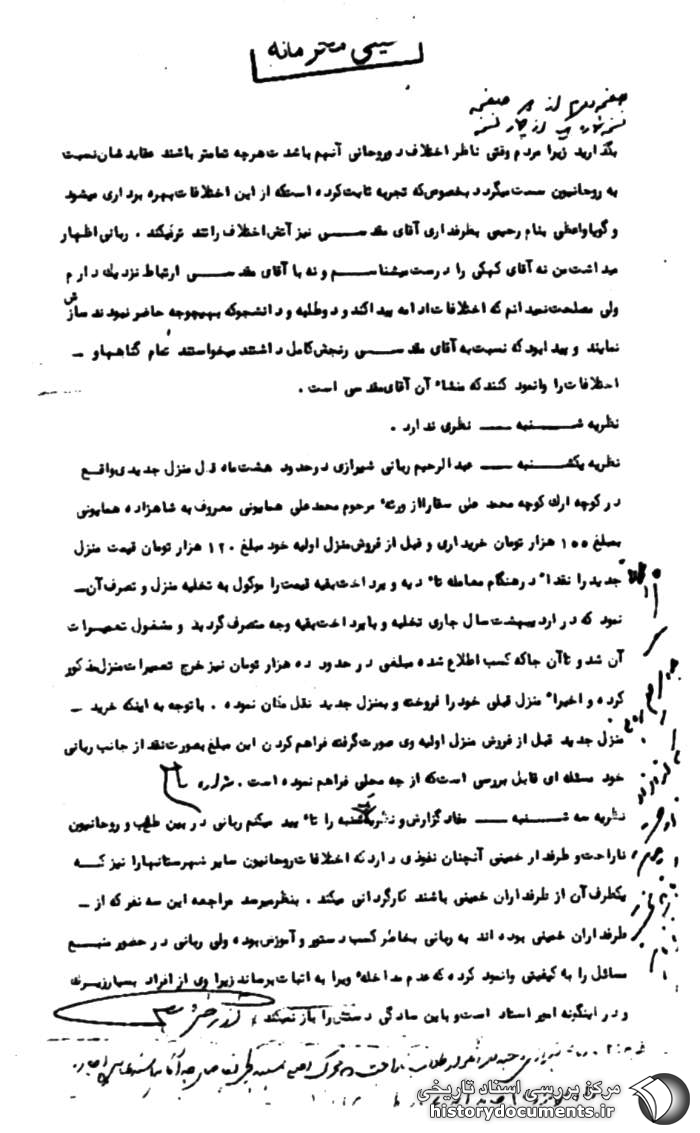 خیلی محرمانه
صفحه دوم از صفحه
نسخه شماره یک از چهار نسخه
بگذارید زیرا مردم وقتی ناظر اختلاف دو روحانی آنهم باشدت هرچه تمامتر باشند عقایدشان نسبت
به روحانیون سست میگردد بخصوص که تجربه ثابت کرده است که از این اختلافات بهره برداری میشود
و گویا واعظی بنام رحیمی بطرفداری آقای مقدسی نیز آتش اختلاف را تند ترمیکند . ربانی اظهار
میداشت من نه آقای کهکی را درست میشناسم و نه با آقای مقدسی ارتباط نزدیک دارم
ولی مصلحت نمیدانم که اختلافات ادامه پیدا کند و دو طلبه و دانشجو که بهیچوجه حاضر نبودند سازش
نمایند و پیدا بود که نسبت به آقای مقدسی رنجش کامل داشتند میخواستند تمام گناهها و -
اختلافات را وانمود کنند که منشاء آن آقای مقدسی است .
نظریه شنبه — نظری ندارد .
نظریه یکشنبه — عبدالرحیم ربانی شیرازی در حدود هشت ماه قبل منزل جدیدی واقع
در کوچه ارک کوچه محمد علی سقا را از ورثه مرحوم محمدعلی همایونی معروف به شاهزاده همایونی
بمبلغ ۱۵۵ هزار تومان خریداری و قبل از فروش منزل اولیه خود مبلغ ۱۲۰ هزار تومان قیمت منزل
جدید را نقداً در هنگام معامله تأدیه و پرداخت بقیه قیمت را موکول به تخلیه منزل و تصرف آن -
نمود که در اردیبهشت سال جاری تخلیه و با پرداخت بقیه وجه متصرف گردید و مشغول تعمیرات
آن شد و تا آن جا که کسب اطلاع شده مبلغی در حدود ده هزار تومان نیز خرج تعمیرات منزل مذکور
کرده و اخیراً منزل قبلی خود را فروخته و بمنزل جدید نقل مکان نموده . با توجه به اینکه خرید -
منزل جدید قبل از فروش منزل اولیه وی صورت گرفته فراهم کردن این مبلغ بصورت نقد از جانب ربانی
خود مسئله ای قابل بررسی است که از چه محلی فراهم نموده است .
نظریه سه شنبه — مفاد گزارش و نظریه یکشنبه را تأیید میکنم ربانی در بین طلاب و روحانیون
ناراحت و طرفدار خمینی آنچنان نفوذی دارد که اختلافات روحانیون سایر شهرستانها را نیز که
یکطرف آن از طرفداران خمینی باشند کارگردانی میکند . بنظر میرسد مراجعه این سه نفر که از -
طرفداران خمینی بوده اند به ربانی بخاطر کسب دستور و آموزش بوده ولی ربانی در حضور منبع
مسائل را به کیفیتی وانمود کرده که عدم مداخله ویرا به اثبات برساند زیرا وی از افراد بسیار زیرک
و در اینگونه امور استاد است و باین سادگی دستش را باز نمیکند .
مرکز بررسی اسناد تاریخی
historydocuments.ir